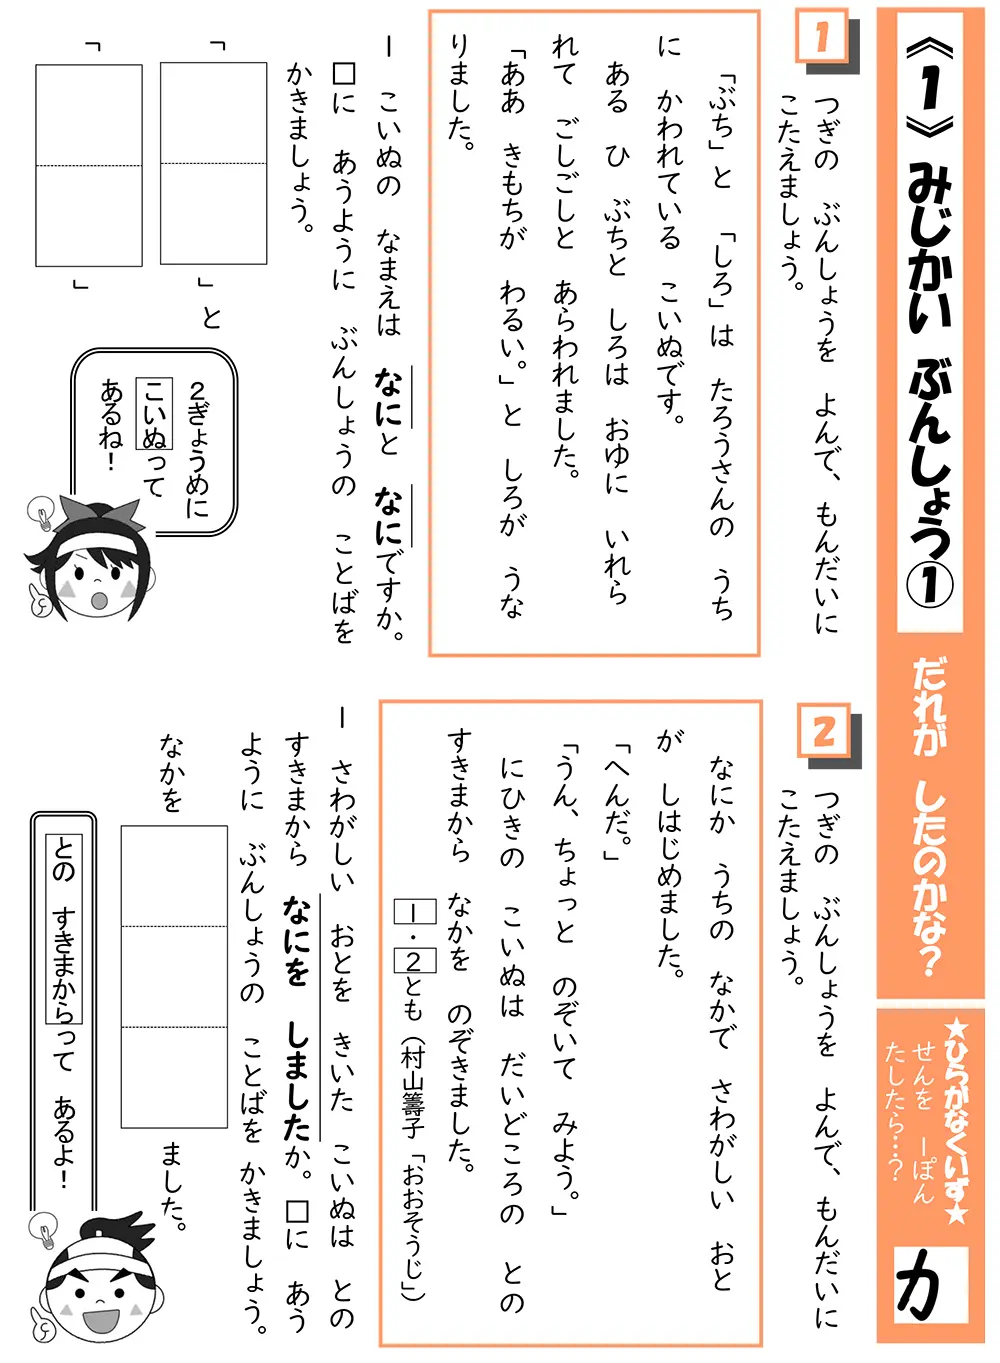 《1》 みじかい ぶんしょう① だれが したのかな?
★ひらがなくいず★
せんを 一ぽん
たしたら…?
カ
1
つぎの ぶんしょうを よんで、もんだいに
こたえましょう。
「ぶち」と 「しろ」は たろうさんの うち
に かわれている こいぬです。
ある ひ ぶちと しろは おゆに いれら
れて ごしごしと あらわれました。
「ああ きもちが わるい。」と しろが うな
りました。
一 こいぬの なまえは なにと なにですか。
□に あうように ぶんしょうの ことばを
かきましょう。
「 」と
「 」
2ぎょうめに
こいぬって
あるね!
2
つぎの ぶんしょうを よんで、もんだいに
こたえましょう。
なにか うちの なかで さわがしい おと
が しはじめました。
「へんだ。」
「うん、ちょっと のぞいて みよう。」
にひきの こいぬは だいどころの との
すきまから なかを のぞきました。
1・2とも(村山籌子「おおそうじ」)
一 さわがしい おとを きいた こいぬは との
すきまから なにを しましたか。□に あう
ように ぶんしょうの ことばを かきましょう。
なかを ました。
との すきまからって あるよ!